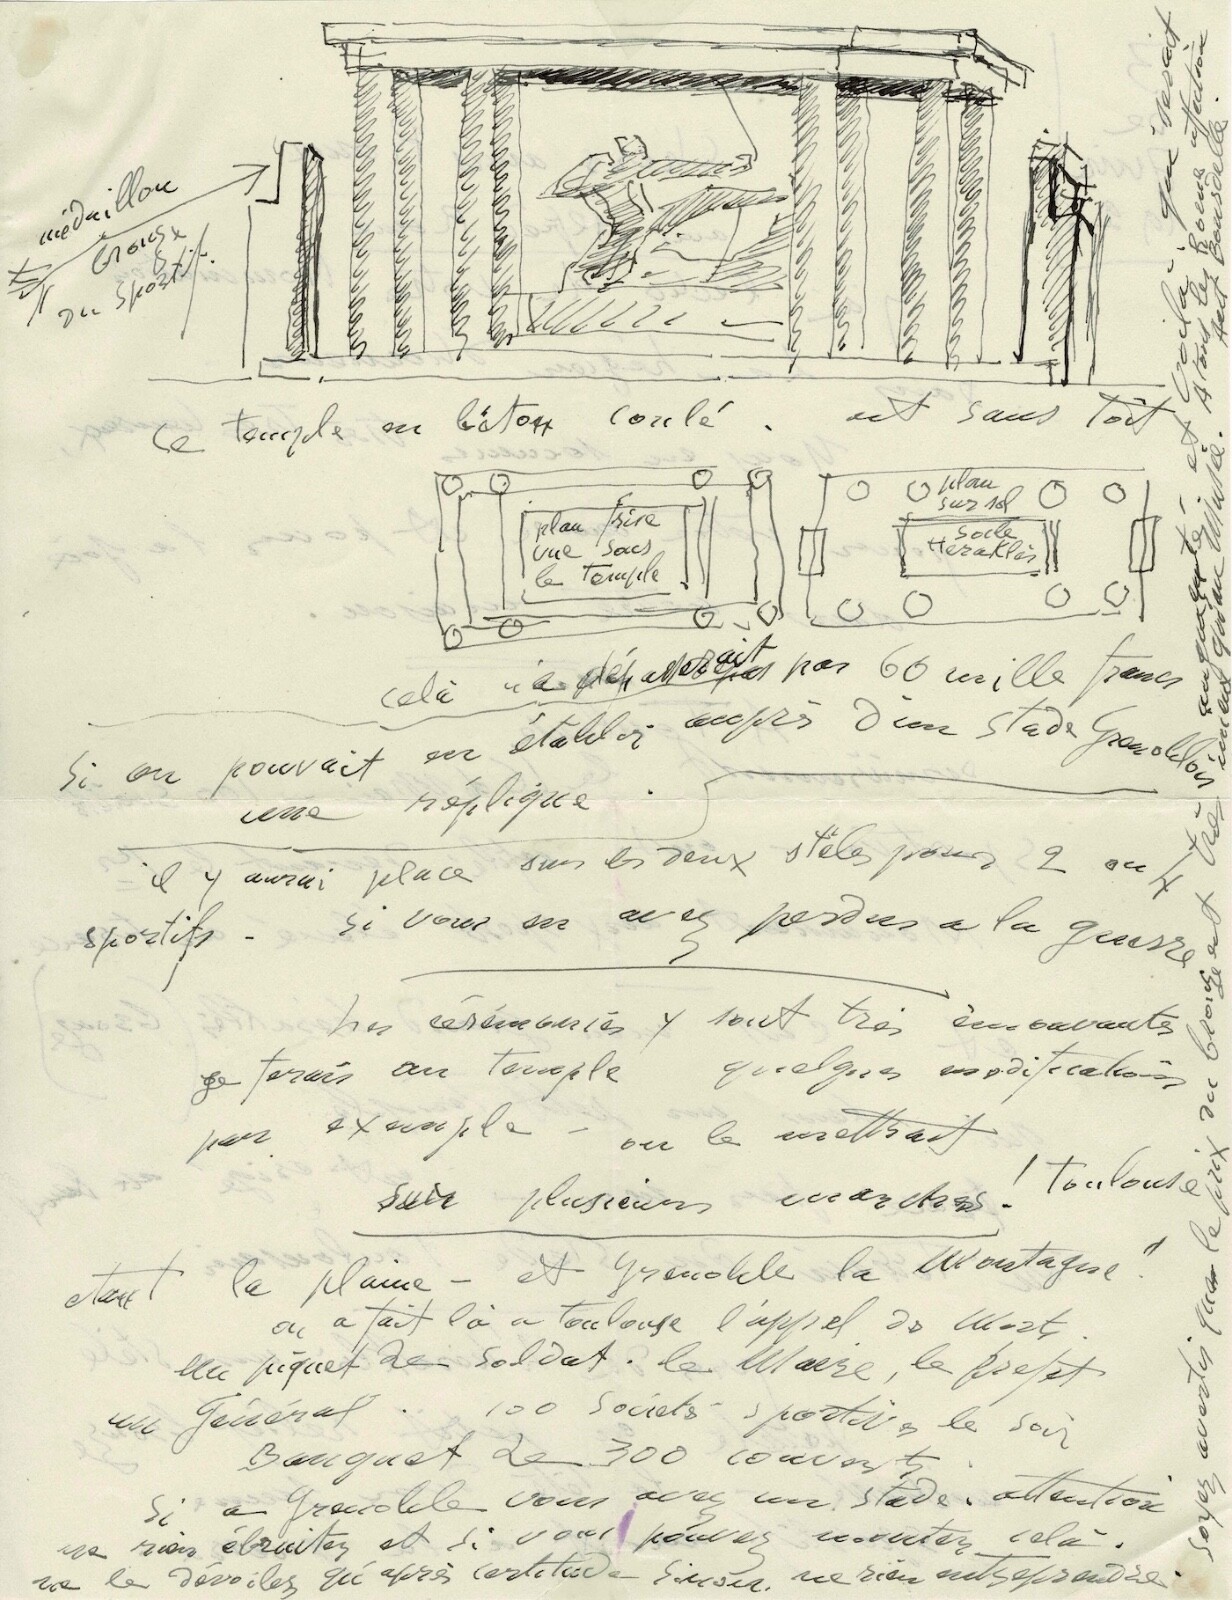 médaillon
bronze
du sportif.
ce temple en béton coulé. est sans toit
plan frise
vue sous
le temple
plan
sur sol
socle
Héraklès
celà n'a dépasserait pas 60 mille francs
Si on pouvait en établir auprès d'un stade Grenoblois
une réplique.
il y aurai place sur les deux stèles pour 2 ou 4
sportifs - si vous en avez perdus a la guerre
Les cérémonies y sont très émouvantes
je ferais au temple quelques modifications
par exemple - on le mettrait
sur plusieurs marches! Toulouse
etant la plaine - et Grenoble la Montagne!
on a fait là a Toulouse l'appel des Morts.
un piquet de soldat. le Maire, le prefet
un Général. 100 societs sportives le soir
Banquet de 300 couverts.
Si a Grenoble vous avez un stade. attention
ne rien ébruitez et si vous pouvez monter celà.
ne le dévoilez qu'après certitude sinon. ne rien entreprendre.
soyez avertis que le prix du bronze est très augmenté et voilà que serait
mieux qu'au Musée. A tous les Bonne attention
Ant Bourdelle.